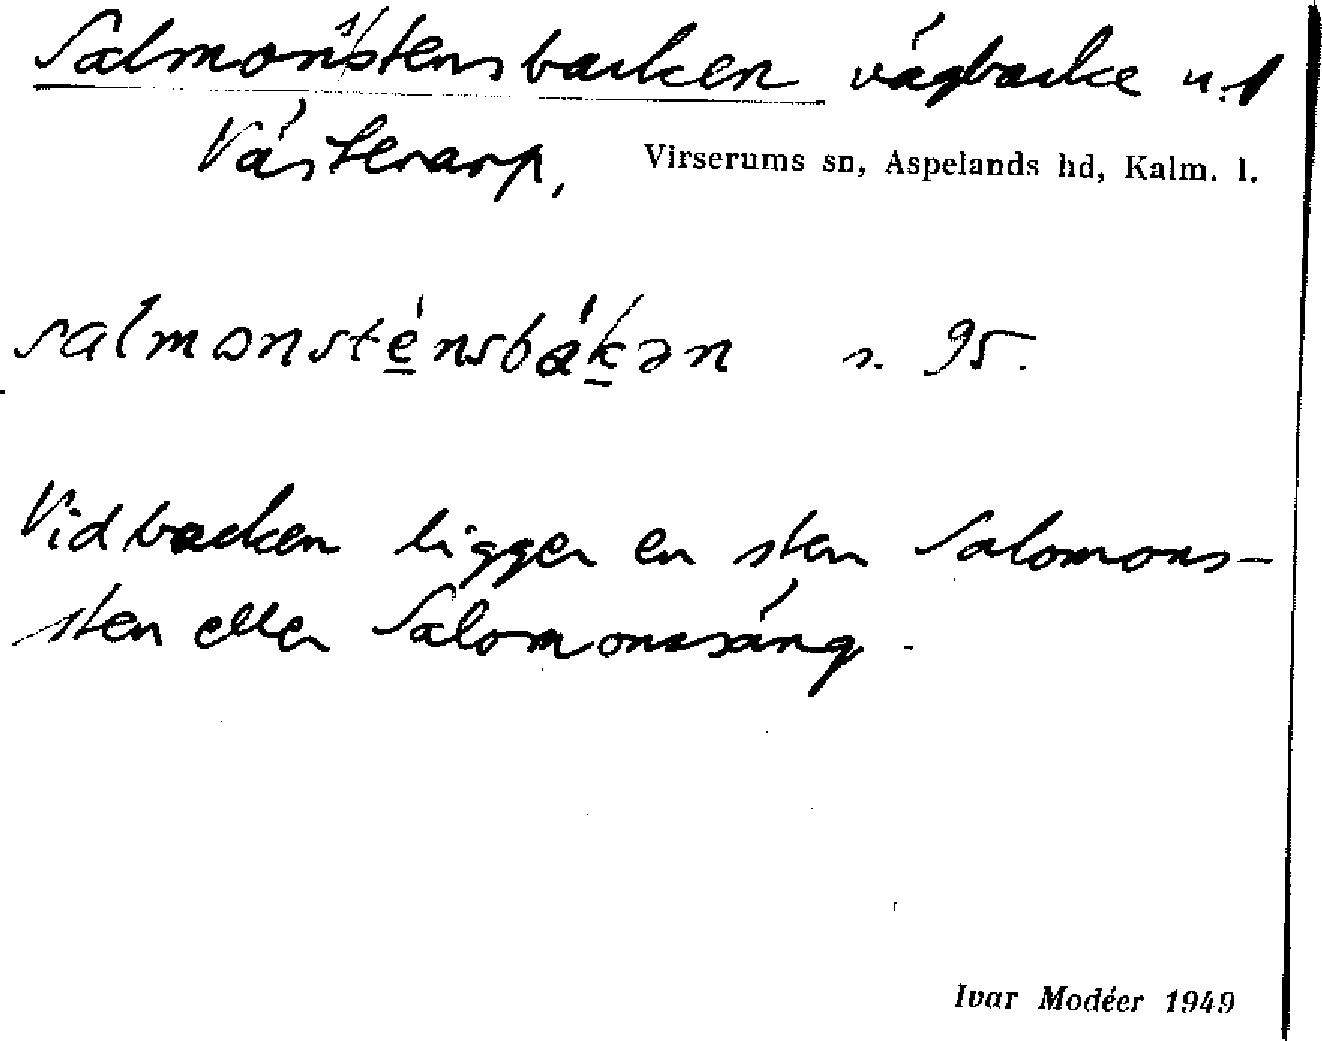 Salmonstensbacken vägbacke u.f
Västerarp, Virserums sn, Aspelands hd, Kalm. l.
salmonsténsbákən s. 95.
Vid backen ligger en sten Salomons-
sten eller Salomonssäng.
Ivar Modéer 1949